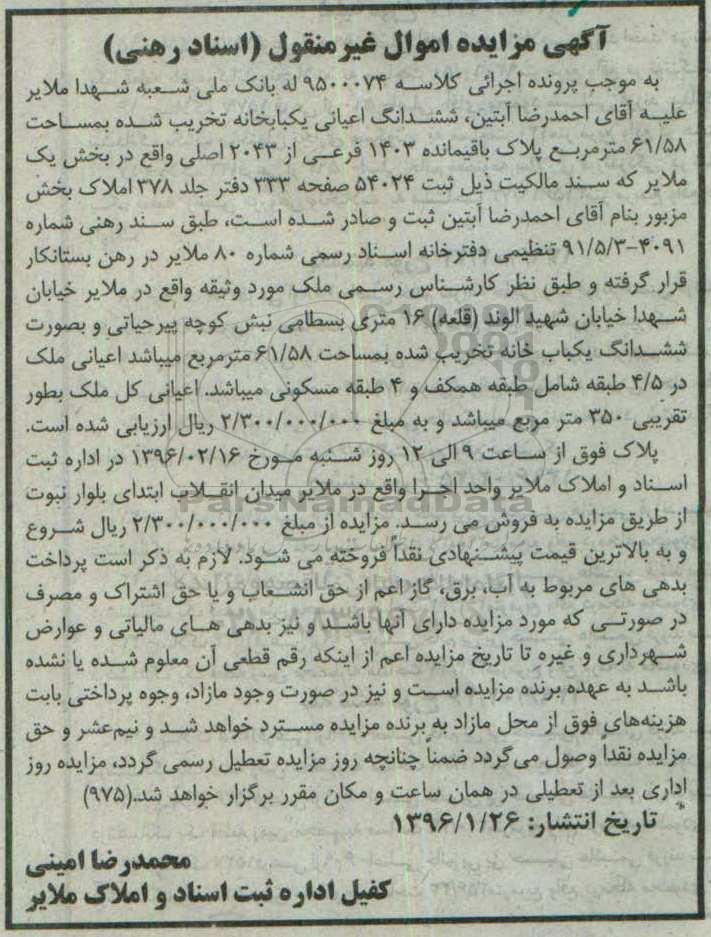 آگهی مزایده اموال غیر منقول (اسناد رهنی)
به موجب پرونده اجرائی کلاسه ۹۵۰۰۰۷۴ له بانک ملی شعبه شهدا ملایر
علیه آقای احمدرضا آبتین، ششدانگ اعیانی یکبابخانه تخریب شده بمساحت
۶۱/۵۸ مترمربع پلاک باقیمانده ۱۴۰۳ فرعی از ۲۰۴۳ اصلی واقع در بخش یک
ملایر که سند مالکیت ذیل ثبت ۵۴۰۲۴ صفحه ۲۳۳ دفتر جلد ۳۷۸ املاک بخش
مزبور بنام آقای احمدرضا آبتین ثبت و صادر شده است، طبق سند رهنی شماره
۴۰۹۱-۹۱/۵/۳ تنظیمی دفترخانه اسناد رسمی شماره ۸۰ ملایر در رهن بستانکار
قرار گرفته و طبق نظر کارشناس رسمی ملک مورد وثیقه واقع در ملایر خیابان
شهدا خیابان شهید الوند (قلعه) ۱۶ متری بسطامی نبش کوچه پیرحیاتی و بصورت
ششدانگ یکباب خانه تخریب شده بمساحت ۶۱/۵۸ مترمربع میباشد اعیانی ملک
در ۴/۵ طبقه شامل طبقه همکف و ۴ طبقه مسکونی میباشد. اعیانی کل ملک بطور
تقریبی ۳۵۰ متر مربع میباشد و به مبلغ ۲/۳۰۰/۰۰۰/۰۰۰ ریال ارزیابی شده است.
پلاک فوق از ساعت ۹ الی ۱۲ روز شنبه مورخ ۱۳۹۶/۰۲/۱۶ در اداره ثبت
اسناد و املاک ملایر واحد اجرا واقع در ملایر میدان انقلاب ابتدای بلوار نبوت
از طریق مزایده به فروش می رسد. مزایده از مبلغ ۲/۳۰۰/۰۰۰/۰۰۰ ریال شروع
و به بالاترین قیمت پیشنهادی نقداً فروخته می شود. لازم به ذکر است پرداخت
بدهی های مربوط به آب، برق، گاز اعم از حق انشعاب و یا حق اشتراک و مصرف
در صورتی که مورد مزایده دارای آنها باشد و نیز بدهی های مالیاتی و عوارض
شهرداری و غیره تا تاریخ مزایده اعم از اینکه رقم قطعی آن معلوم شده یا نشده
باشد به عهده برنده مزایده است و نیز در صورت وجود مازاد، وجوه پرداختی بابت
هزینه‌های فوق از محل مازاد به برنده مزایده مسترد خواهد شد و نیم‌عشر و حق
مزایده نقداً وصول می‌گردد ضمناً چنانچه روز مزایده تعطیل رسمی گردد، مزایده روز
اداری بعد از تعطیلی در همان ساعت و مکان مقرر برگزار خواهد شد.(۹۷۵)
تاریخ انتشار: ۱۳۹۶/۱/۲۶
محمدرضا امینی
کفیل اداره ثبت اسناد و املاک ملایر
ParsNamadData